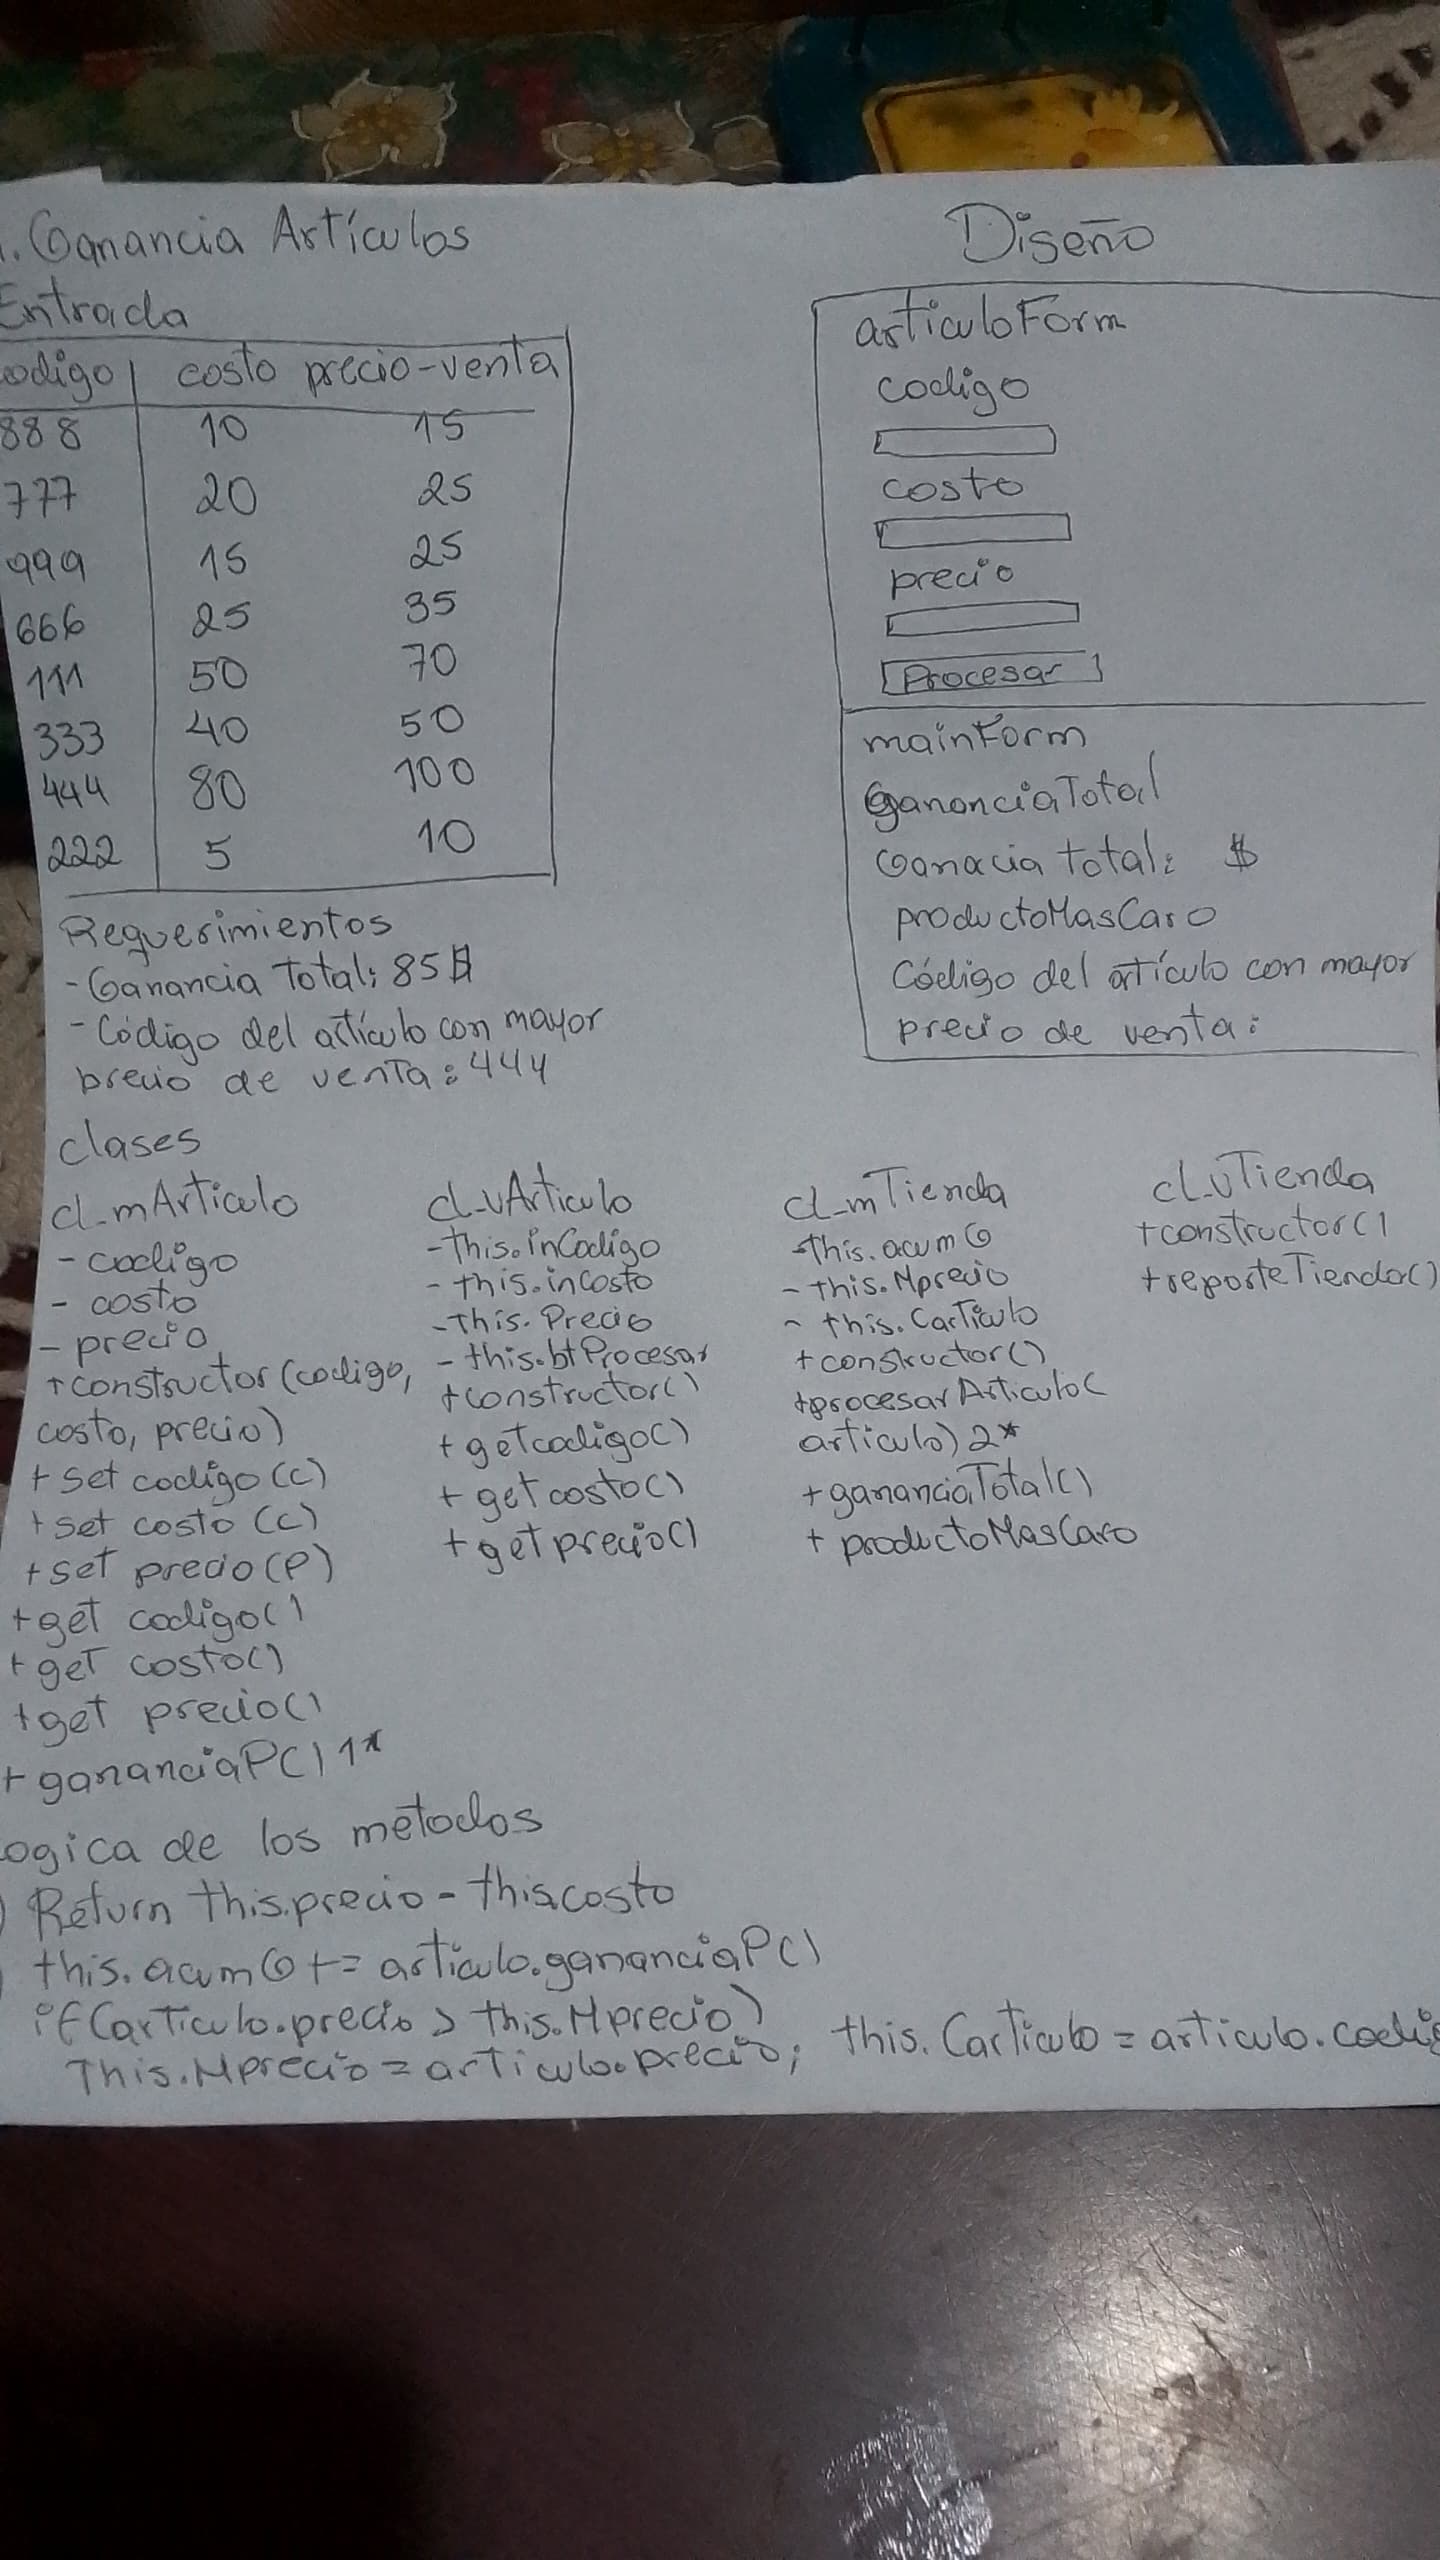 1. Ganancia Artículos
Entrada
codigo costo precio-venta
888 10 15
777 20 25
999 15 25
666 25 35
111 50 70
333 40 50
444 80 100
222 5 10
Requerimientos
- Ganancia Total: 85$
- Código del artículo con mayor
precio de venta: 444
Diseño
articuloForm
codigo
costo
precio
Procesar
mainForm
GananciaTotal
Ganacia total: $
productoMasCaro
Código del artículo con mayor
precio de venta:
clases
cl_mArticulo
- codigo
- costo
- precio
+constructor(codigo,
costo, precio)
+ set codigo(c)
+ set costo (c)
+ set precio(p)
+ get codigo()
+ get costo()
+ get precio()
+ gananciaP() 1*
cl_vArticulo
- this.inCodigo
- this.inCosto
- This.Precio
- this.btProcesar
+constructor()
+ getcodigo()
+ getcosto()
+ getprecio()
cl_mTienda
- this.acumG
- this.Mprecio
- this.Carticulo
+constructor()
+procesarArticulo(
articulo) 2*
+ gananciaTotal()
+ productoMasCaro
cl_vTienda
+constructor()
+reporteTienda()
Logica de los metodos
) Return this.precio - this.costo
) this.acumG += articulo.gananciaP()
if(articulo.precio > this.Mprecio)
This.Mprecio = articulo.precio; this.Carticulo = articulo.codig